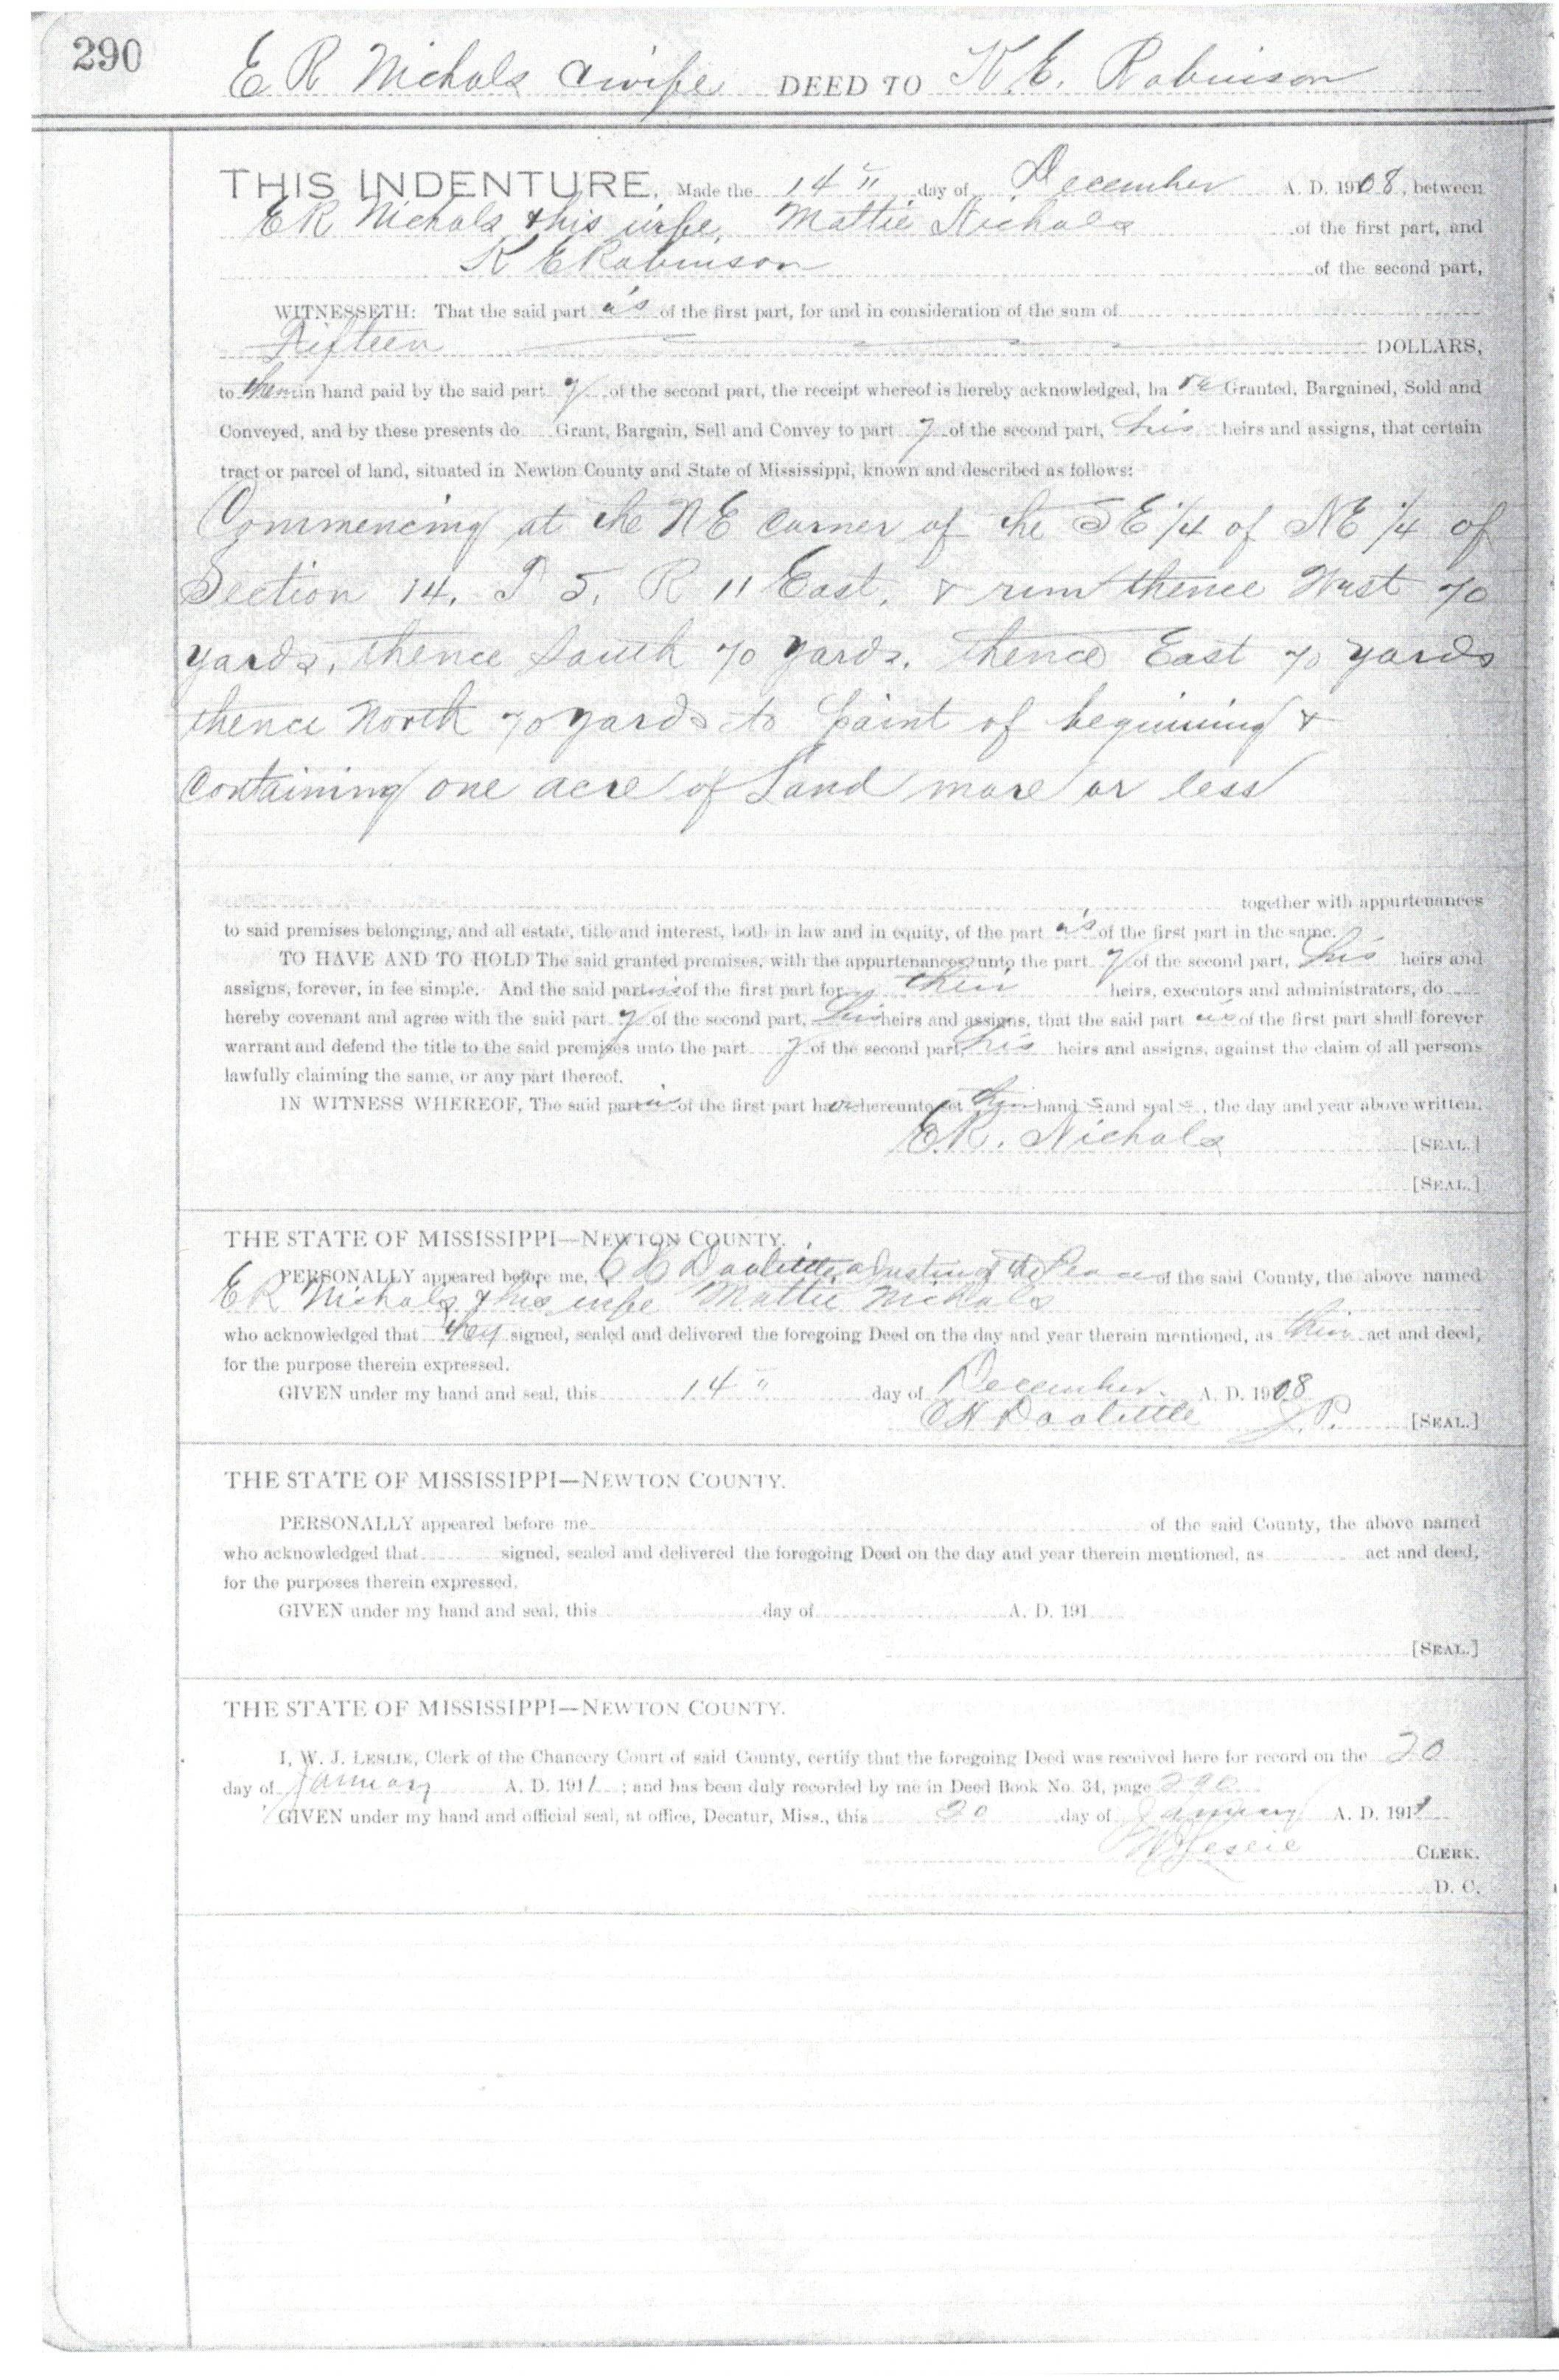 290
E R Nichols & wife DEED TO K. E. Robinson
THIS INDENTURE, Made the 14" day of December A. D. 1908, between
E R Nichols & his wife, Mattie Nichols of the first part, and
K E Robinson of the second part,
WITNESSETH: That the said part ies of the first part, for and in consideration of the sum of
Fifteen DOLLARS,
to them in hand paid by the said part y of the second part, the receipt whereof is hereby acknowledged, ha ve Granted, Bargained, Sold and
Conveyed, and by these presents do Grant, Bargain, Sell and Convey to part y of the second part, his heirs and assigns, that certain
tract or parcel of land, situated in Newton County and State of Mississippi, known and described as follows:
Commencing at the NE corner of the SE 1/4 of NE 1/4 of
Section 14, T 5, R 11 East, & run thence West 70
yards, thence South 70 yards, thence East 70 yards
thence North 70 yards to point of beginning &
Containing one acre of Land more or less
together with appurtenances
to said premises belonging, and all estate, title and interest, both in law and in equity, of the part ies of the first part in the same.
TO HAVE AND TO HOLD The said granted premises, with the appurtenances, unto the part y of the second part, his heirs and
assigns, forever, in fee simple. And the said part ies of the first part for their heirs, executors and administrators, do
hereby covenant and agree with the said part y of the second part, his heirs and assigns, that the said part ies of the first part shall forever
warrant and defend the title to the said premises unto the part y of the second part, his heirs and assigns, against the claim of all persons
lawfully claiming the same, or any part thereof.
IN WITNESS WHEREOF, The said part ies of the first part have hereunto set their hand s and seal s, the day and year above written.
E.R. Nichols [SEAL.]
[SEAL.]
THE STATE OF MISSISSIPPI—NEWTON COUNTY.
PERSONALLY appeared before me, C H Doolittle, a Justice of the Peace of the said County, the above named
E R Nichols & his wife Mattie Nichols
who acknowledged that they signed, sealed and delivered the foregoing Deed on the day and year therein mentioned, as their act and deed,
for the purpose therein expressed.
GIVEN under my hand and seal, this 14" day of December, A. D. 1908
C H Doolittle J.P. [SEAL.]
THE STATE OF MISSISSIPPI—NEWTON COUNTY.
PERSONALLY appeared before me of the said County, the above named
who acknowledged that signed, sealed and delivered the foregoing Deed on the day and year therein mentioned, as act and deed,
for the purposes therein expressed.
GIVEN under my hand and seal, this day of A. D. 191
[SEAL.]
THE STATE OF MISSISSIPPI—NEWTON COUNTY.
I, W. J. LESLIE, Clerk of the Chancery Court of said County, certify that the foregoing Deed was received here for record on the 20
day of January A. D. 1911 ; and has been duly recorded by me in Deed Book No. 34, page 290
GIVEN under my hand and official seal, at office, Decatur, Miss., this 20 day of January A. D. 1911
W J Leslie CLERK.
D. C.